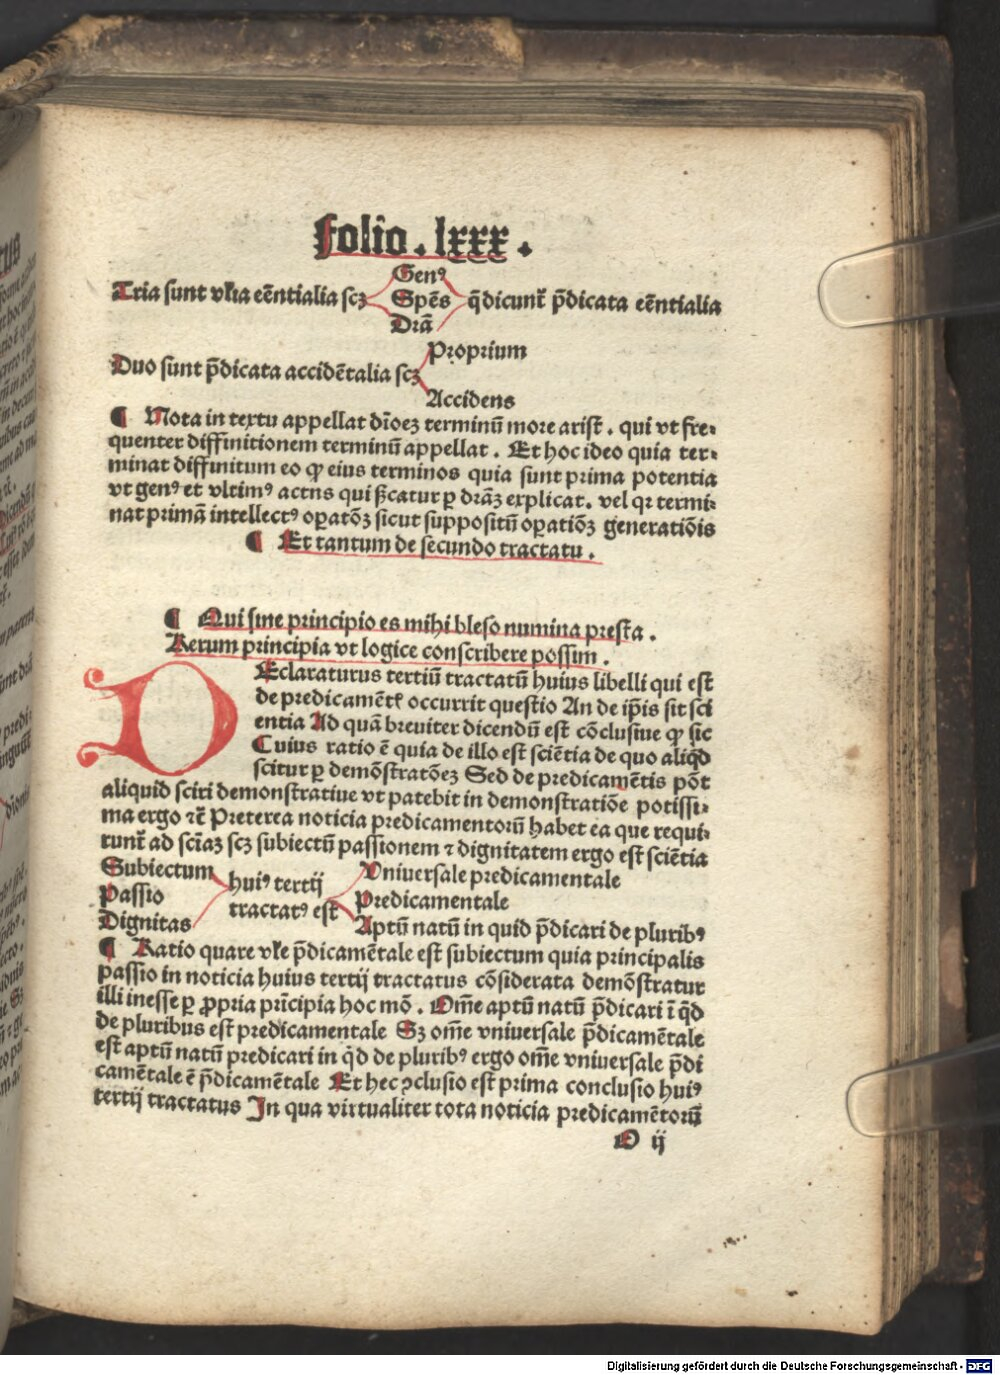 folio . lxxx .
Genꝰ
Tria sunt vl̕ia eēntialia scꝫ Spēs q̄dicunt᷑ p̄dicata eēntialia
Dr̄a
Proprium
Duo sunt p̄dicata accidētalia scꝫ
Accidens
¶ Nota in textu appellat dīoeꝫ terminū more arist̄ . qui vt fre⸗
quenter diffinitionem terminū appellat . Et hoc ideo quia ter⸗
minat diffinitum eo ꝙ eius terminos quia sunt prima potentia
vt genꝰ et vltimꝰ actus qui ß̄catur ꝑ dr̄aꝫ explicat. vel qꝛ termi⸗
nat primā intellectꝰ oꝑatōꝫ sicut suppositū oꝑatiōꝫ generatiōis
¶ Et tantum de secundo tractatu .
¶ Qui sine principio es mihi bleso numina presta .
Rerum principia vt logice conscribere possim .
DEclaraturus tertiū tractatū huius libelli qui est
de predicamēt᷑ occurrit questio An de ip̄is sit sci
entia Ad quā breuiter dicendū est cōclusiue ꝙ sic
Cuius ratio ē quia de illo est sciētia de quo aliqd̄
scitur ꝑ demōstratōeꝫ Sed de predicamētis pōt
aliquid sciri demonstratiue vt patebit in demonstratiōe potissi⸗
ma ergo ⁊c̄ Preterea noticia predicamentorū habet ea que requi⸗
runt᷑ ad sciāꝫ scꝫ subiectū passionem ⁊ dignitatem ergo est sciētia
Subiectum huiꝰ tertij Vniuersale predicamentale
Passio tractatꝰ est Predicamentale
Dignitas Aptū natū in quid p̄dicari de pluribꝰ
¶ Ratio quare vl̕e p̄dicamētale est subiectum quia principalis
passio in noticia huius tertij tractatus cōsiderata demōstratur
illi inesse ꝑ ꝓpria prīcipia hoc mō . Om̄e aptū natū p̄dicari ī qd̄
de pluribus est predicamentale Sꝫ om̄e vniuersale p̄dicamētale
est aptū natū predicari in qd̄ de pluribꝰ ergo om̄e vniuersale p̄di
camētale ē p̄dicamētale Et hec ꝯclusio est prima conclusio huiꝰ
tertij tractatus In qua virtualiter tota noticia predicamētorū
O ij
Digitalisierung gefördert durch die Deutsche Forschungsgemeinschaft - DFG